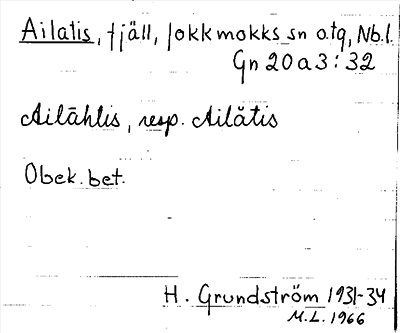 Ailatis, fjäll, Jokkmokks sn o.tg, Nb.l.
Gn 20a3:32
Ailāhtis, resp. Ailǎtis
Obek. bet.
H. Grundström 1931-34
M.L. 1966